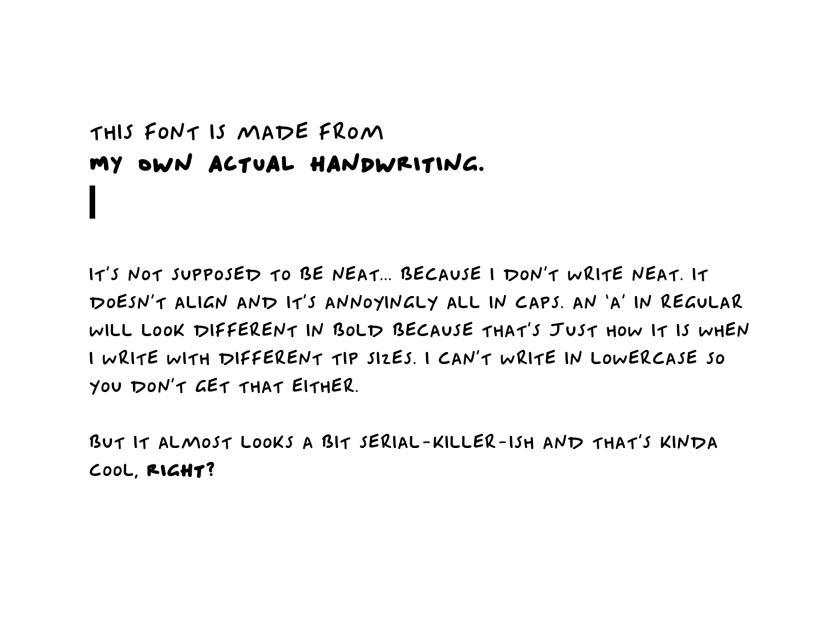 THIS FONT IS MADE FROM
MY OWN ACTUAL HANDWRITING.
IT'S NOT SUPPOSED TO BE NEAT... BECAUSE I DON'T WRITE NEAT. IT
DOESN'T ALIGN AND IT'S ANNOYINGLY ALL IN CAPS. AN 'A' IN REGULAR
WILL LOOK DIFFERENT IN BOLD BECAUSE THAT'S JUST HOW IT IS WHEN
I WRITE WITH DIFFERENT TIP SIZES. I CAN'T WRITE IN LOWERCASE SO
YOU DON'T GET THAT EITHER.
BUT IT ALMOST LOOKS A BIT SERIAL-KILLER-ISH AND THAT'S KINDA
COOL, RIGHT?